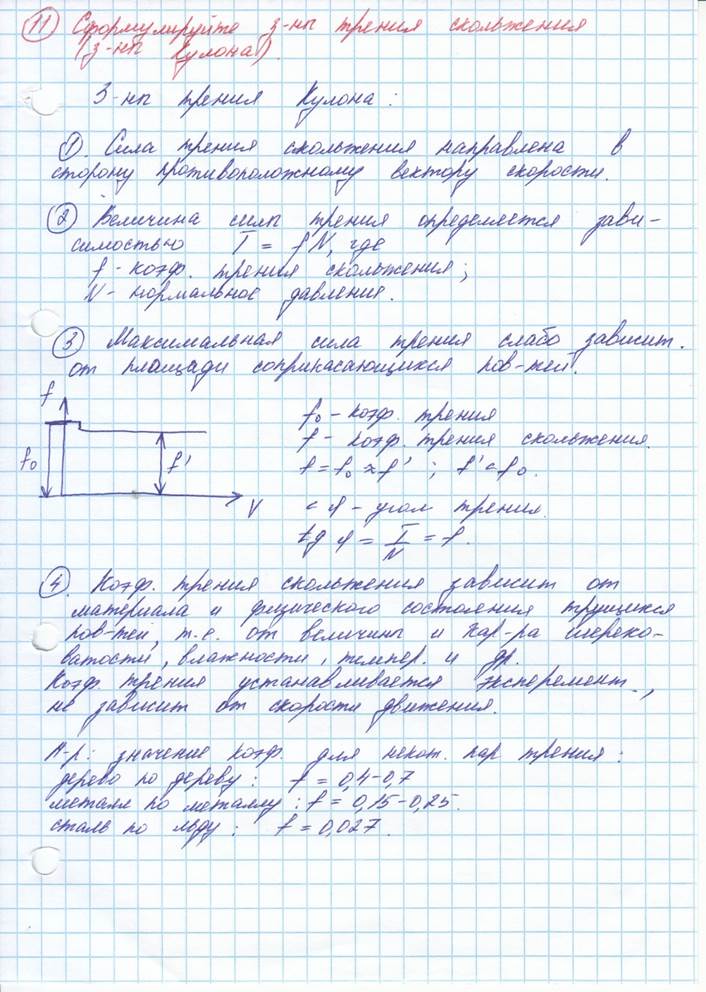 11 Сформулируйте з-ны трения скольжения
(з-ны Кулона).
З-ны трения Кулона:
1. Сила трения скольжения направлена в
сторону противоположному вектору скорости.
2 Величина силы трения определяется зави-
симостью T = fN, где
f - коэф. трения скольжения;
N - нормальное давление.
3 Максимальная сила трения слабо зависит
от площади соприкасающихся пов-тей.
f
f₀
f'
V
f₀ - коэф. трения
f - коэф. трения скольжения.
f = f₀ ≈ f' ; f' < f₀.
φ - угол трения.
tg φ = T/N = f.
4 Коэф. трения скольжения зависит от
материала и физического состояния трущихся
пов-тей, т.е. от величины и хар-ра шерохо-
ватости, влажности, темпер. и др.
Коэф. трения устанавливается эксперемент.,
не зависит от скорости движения.
Н-р: значение коэф. для некот. пар трения:
дерево по дереву: f = 0,4-0,7
металл по металлу: f = 0,15-0,25.
сталь по льду: f = 0,027.